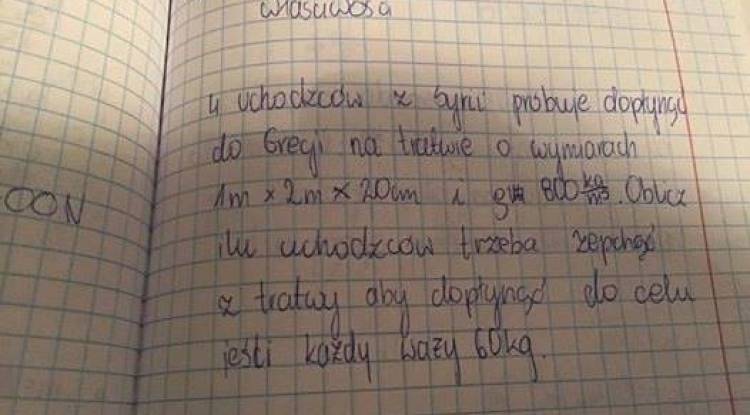 właściwości
4 uchodźców z Syrii próbuje dopłynąć
do Grecji na tratwie o wymiarach
OON
1m x 2m x 20cm i g 800 kg/m3. Oblicz
ilu uchodźców trzeba zepchnąć
z tratwy aby dopłynąć do celu
jeśli każdy waży 60kg.